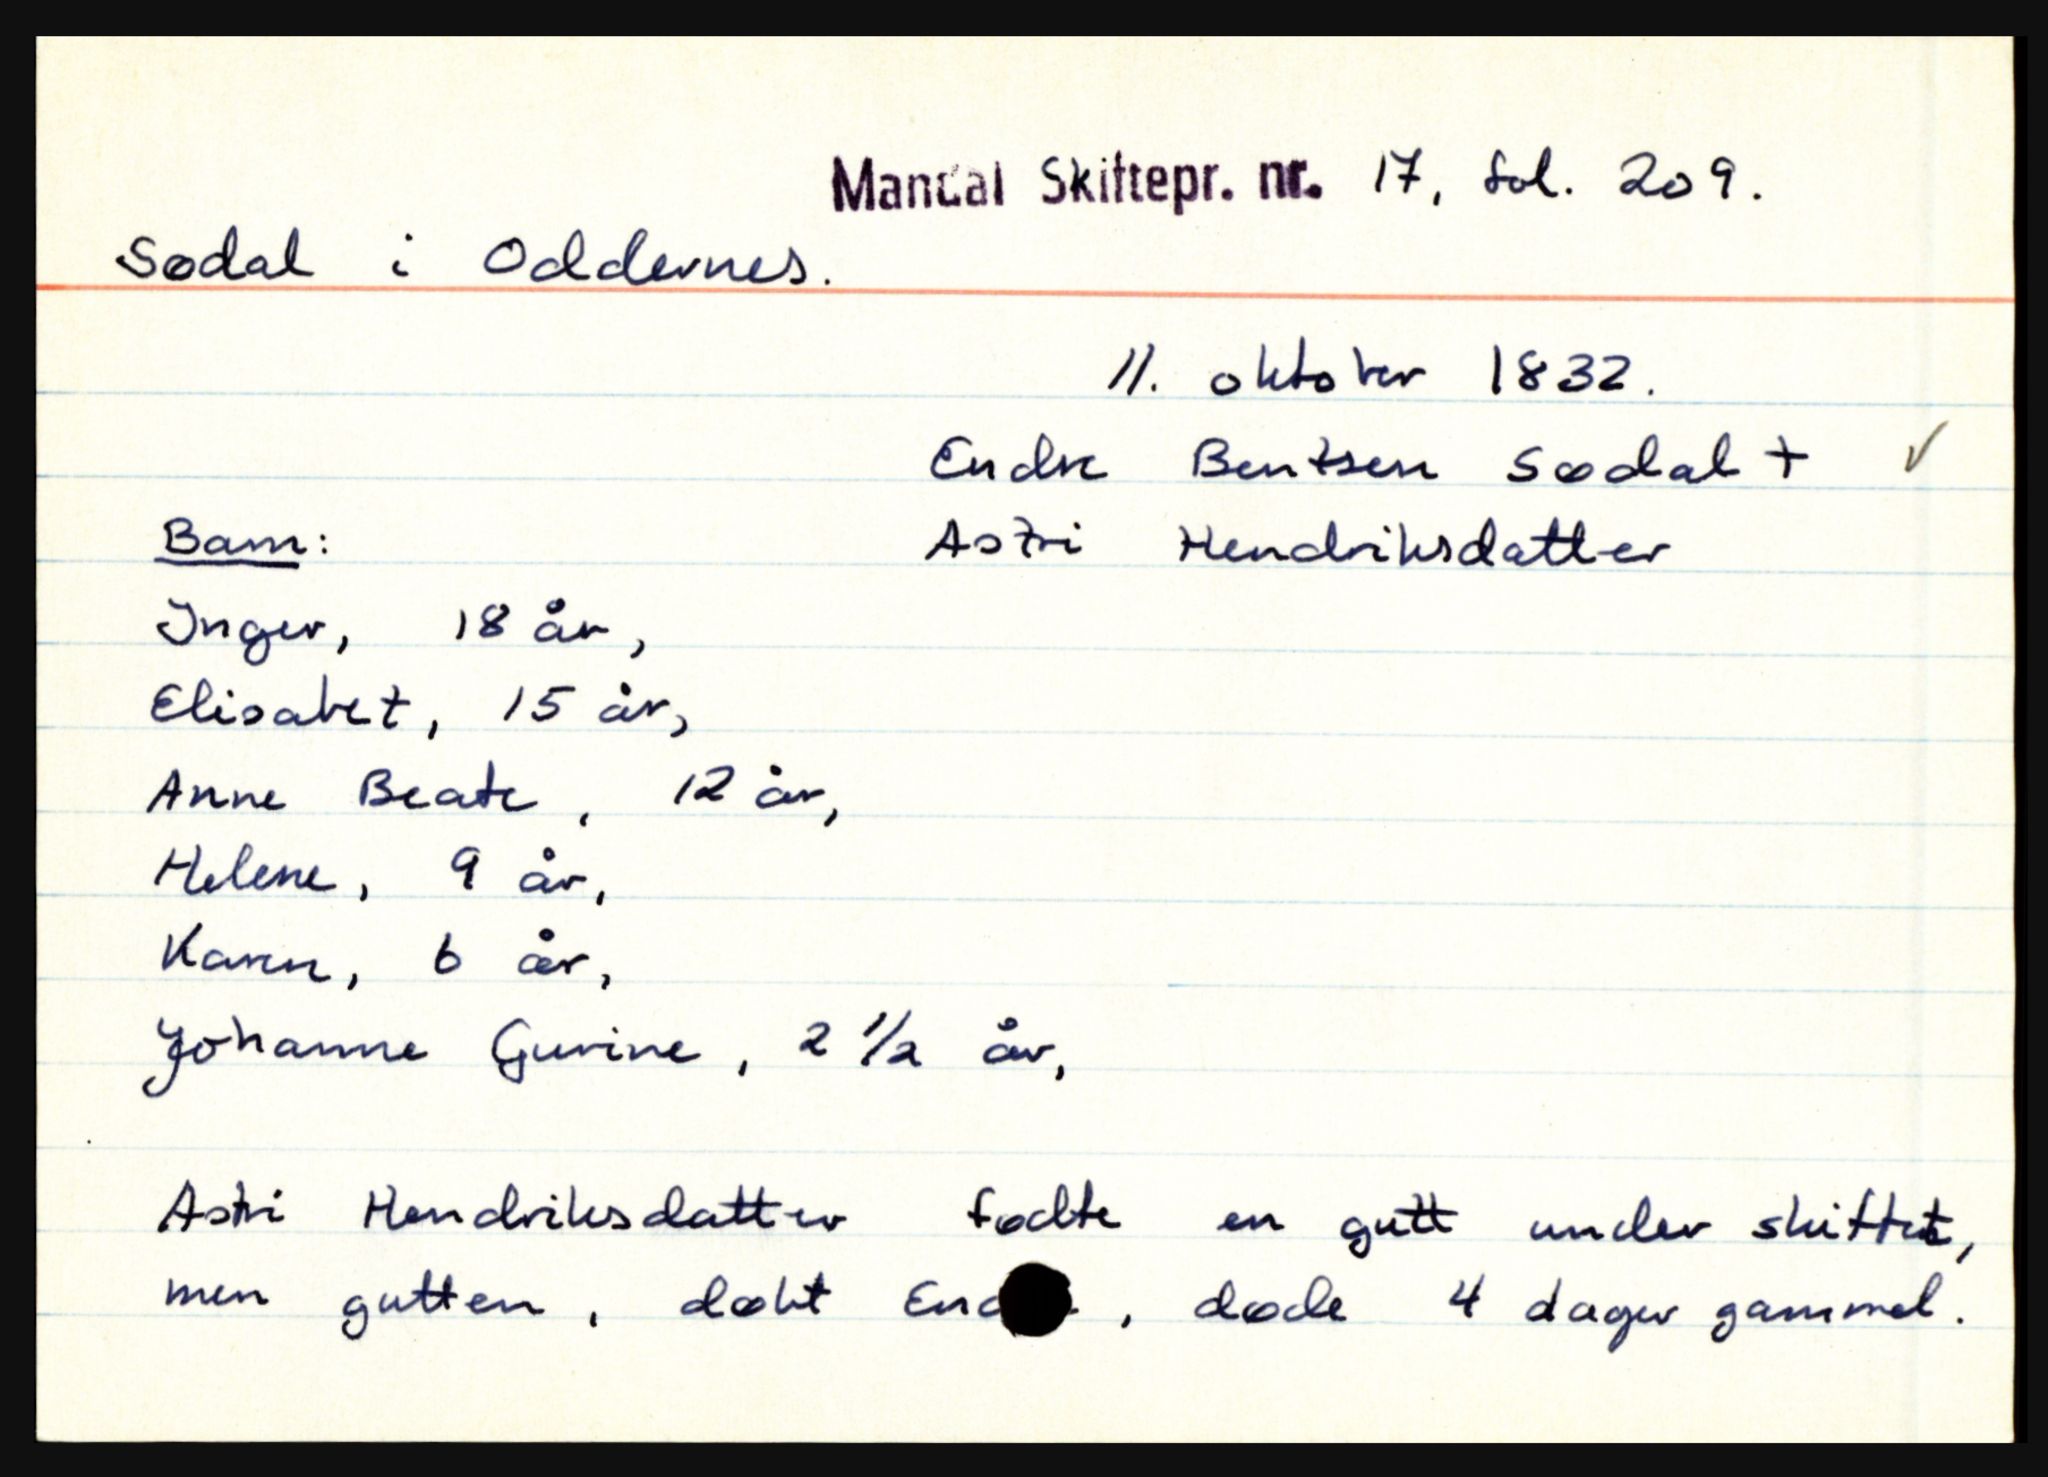 Mandal Skiftepr. nr. 17, fol. 209.
Sødal i Oddernes.
11. oktober 1832.
Endre Bentsen Sødal + ✓
Astri Hendriksdatter
Barn:
Inger, 18 år,
Elisabet, 15 år,
Anne Beate, 12 år,
Helene, 9 år,
Karen, 6 år,
Johanne Gurine, 2 1/2 år,
Astri Hendriksdatter fødte en gutt under skiftet,
men gutten, døbt, døde 4 dager gammel.